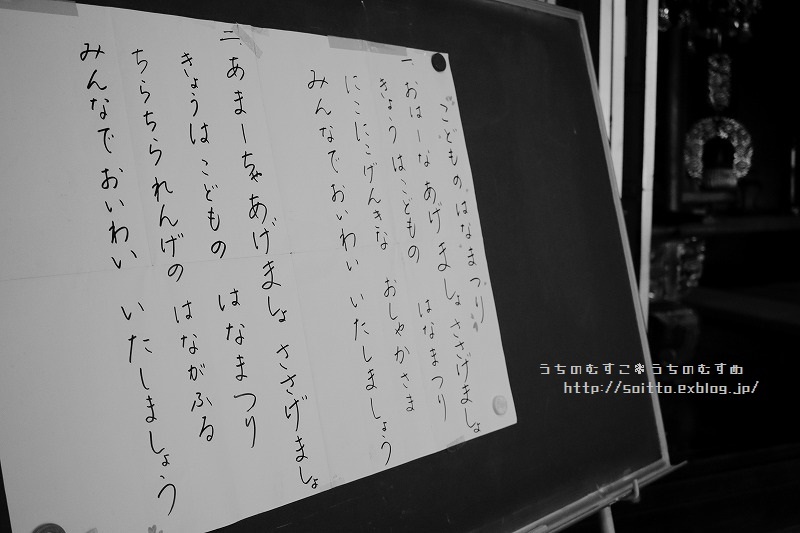 こどものはなまつり
一、おはーなあげましょ ささげましょ
きょうはこどもの はなまつり
にこにこげんきな おしゃかさま
みんなでおいわい いたしましょう
二、あまーちゃあげましょ ささげましょ
きょうはこどもの はなまつり
ちらちられんげの はながふる
みんなでおいわい いたしましょう
うちのむすこ❃うちのむすめ
http://saitto.exblog.jp/